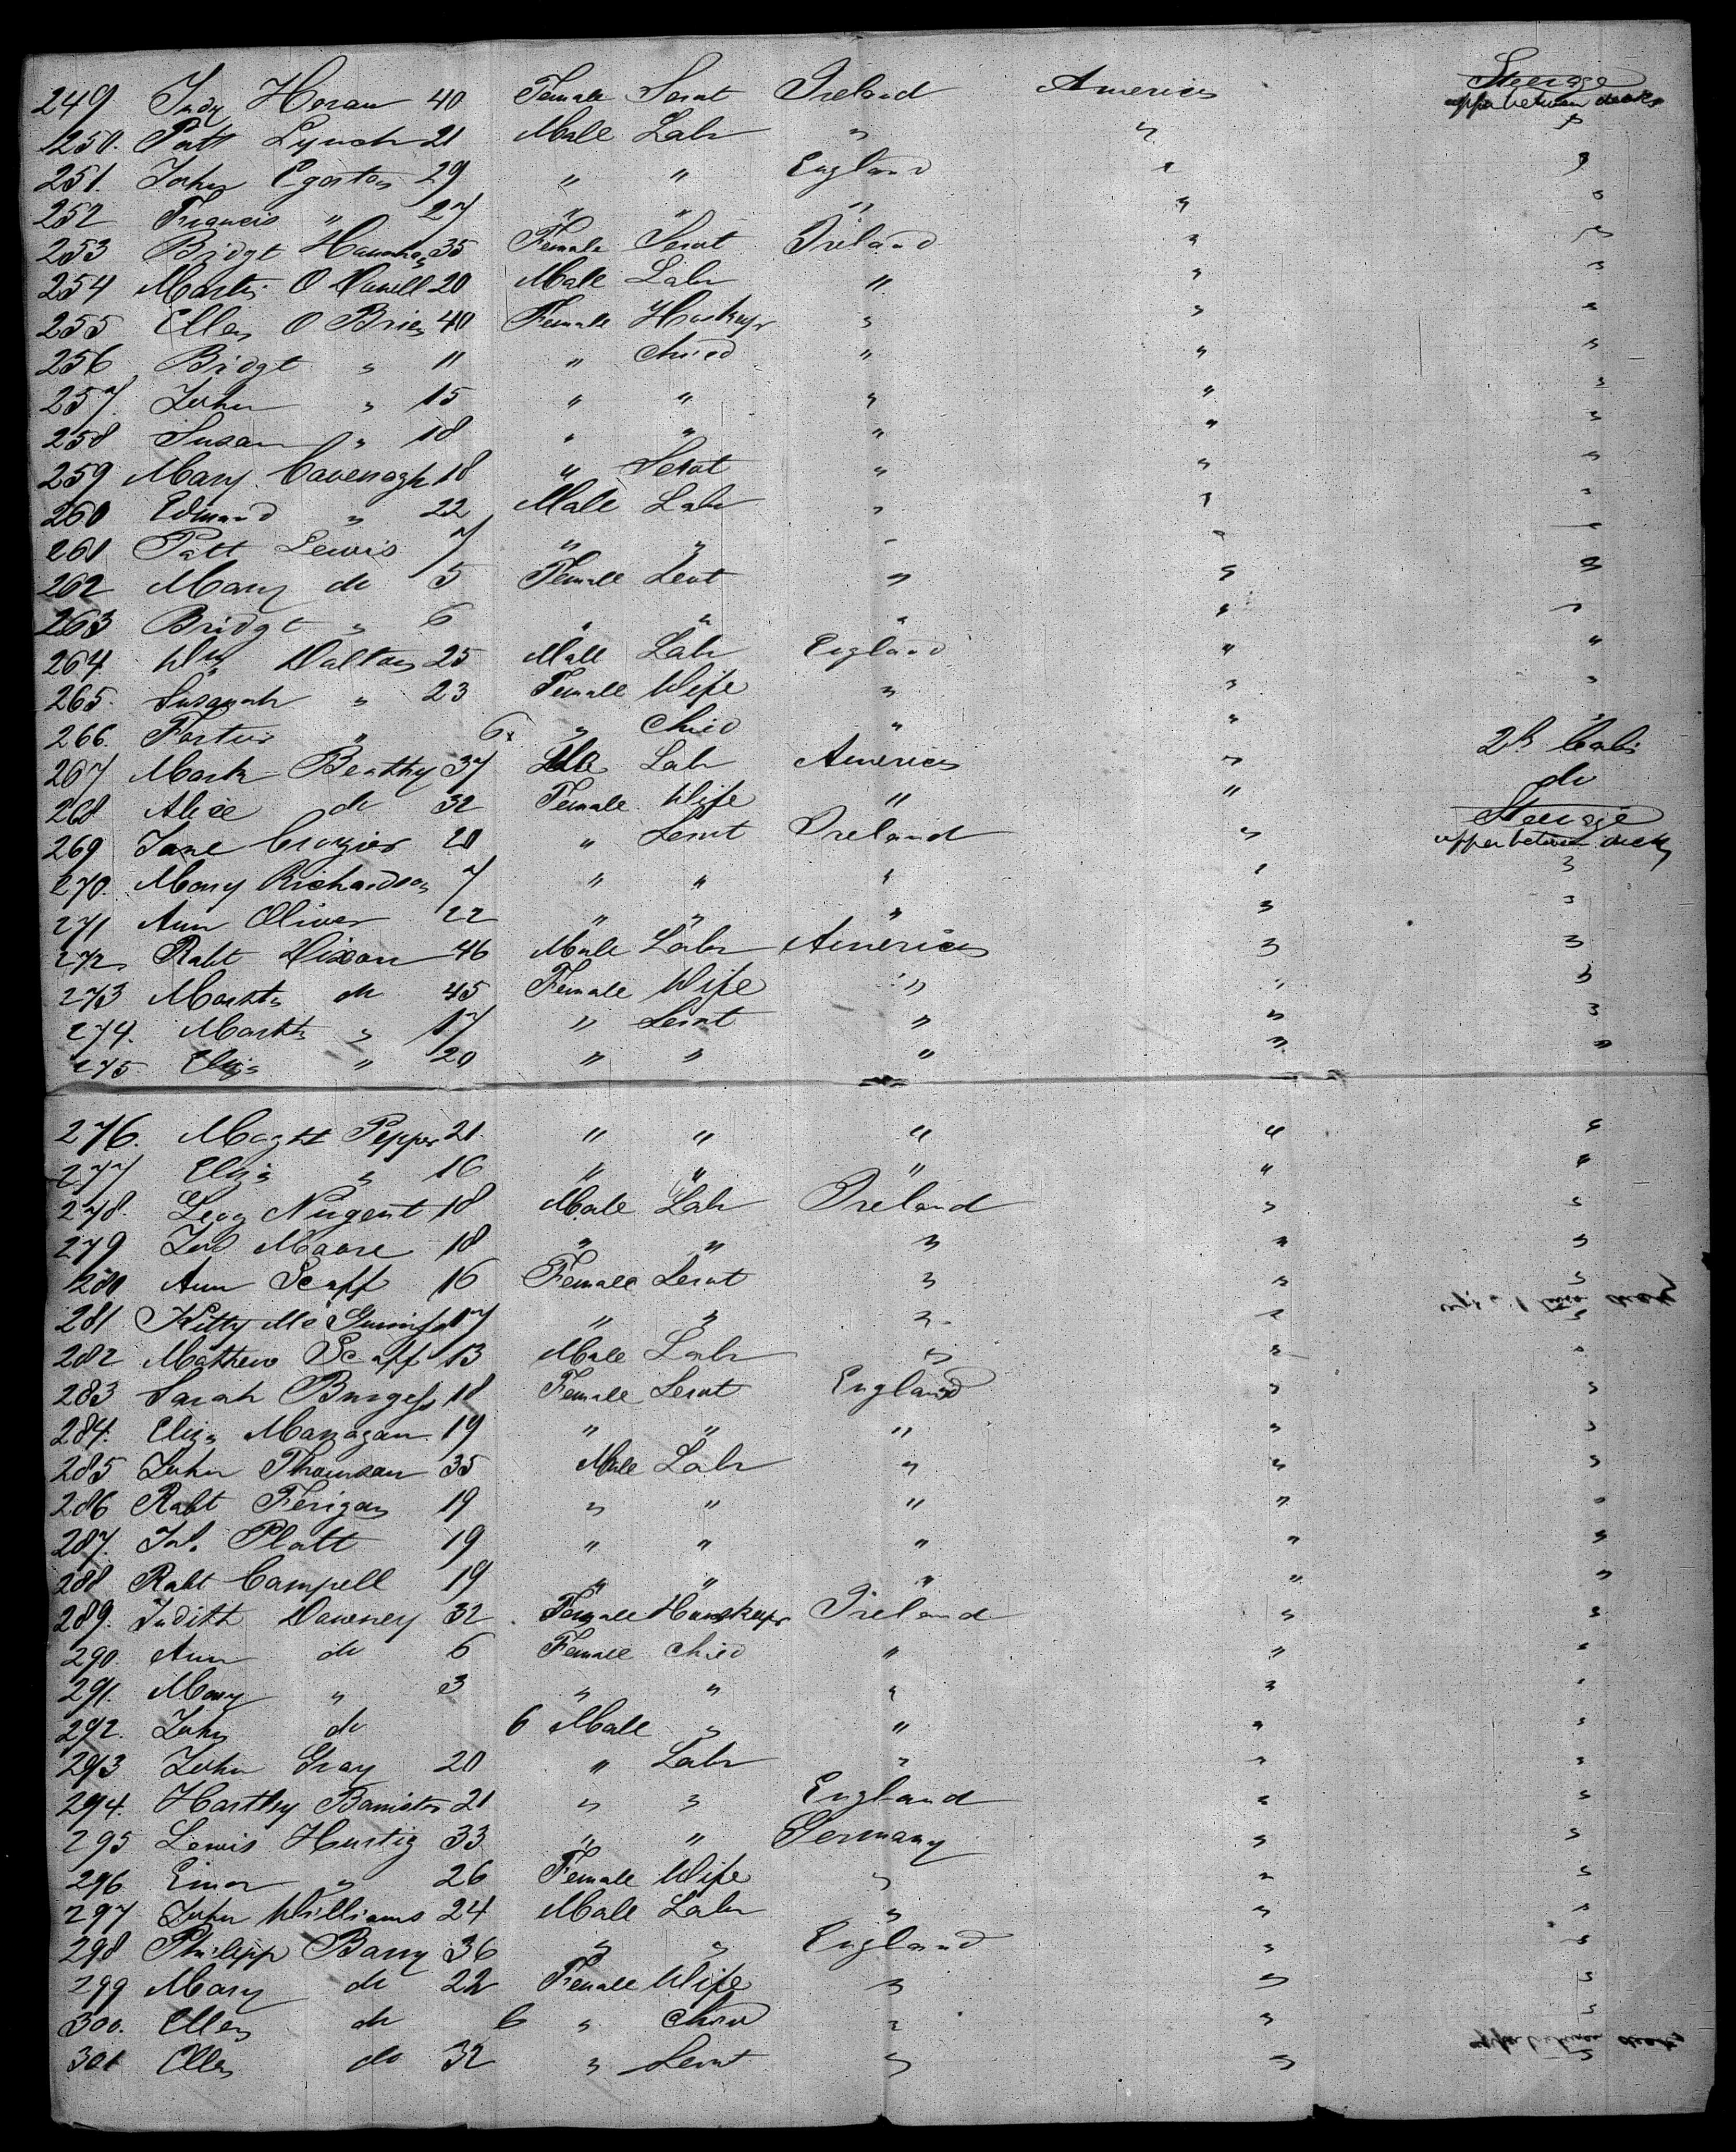 249 Judy Horan 40 Female Servt Ireland America Steerage
upper between decks
250. Patt Lynch 21 Male Labr " " "
251. John Egerton 29 " " England " "
252 Francis " 27 " " " " "
253 Bridgt 35 Female Servt Ireland " "
254 Martin O 20 Male Labr " " "
255 Ellen O Brien 40 Female Huskepr " " "
256 Bridgt " 11 " Child " " "
257. John " 15 " " " " "
258 Susan " 18 " " " " "
259 Mary Cavenagh 18 " Servt " " "
260 Edmund " 22 Male Labr " " "
261 Patt Lewis 7 " " " " "
262 Mary do 5 Female Servt " " "
263 Bridgt " 6 " " " " "
264. Wm Dalton 25 Male Labr England " "
265. Susanah " 23 Female Wife " " "
266. " 6 " Child " " "
267 Mark Beathy 37 Labr America " 2d Cabi
268 Alice do 32 Female Wife " " do
269 Jane Crozier 20 " Servt Ireland " Steerage
upper between decks
270. Mary Richardson 7 " " " " "
271 Ann Oliver 22 " " " " "
272 Robt Dixon 46 Male Labr America " "
273 Martha do 45 Female Wife " " "
274. Martha " 17 " Servt " " "
275 Eliza " 20 " " " " "
276. Magt Pepper 21 " " " " "
277 Eliza " 16 " " " " "
278. Nugent 18 Male Labr Ireland " "
279 Jno Moore 18 " " " " "
280 Ann Scaff 16 Female Servt " " "
281 Kitty Mc 17 " " " " "
282 Mathew Scaff 13 Male Labr " " "
283 Sarah Burgess 18 Female Servt England " "
284. Eliza Managan 19 " " " " "
285 John Thomson 35 Male Labr " " "
286 Robt Ferigan 19 " " " " "
287. Jno. Platt 19 " " " " "
288 Robt Campell 19 " " " " "
289. Judith Downey 32 Female Huuskepr Ireland " "
290. Ann do 6 Female Child " " "
291. Mary " 3 " " " " "
292. John do 6 Male " " " "
293 John Gray 20 " Labr " " "
294. Hartley Banister 21 " " England " "
295 Lewis Hurtig 33 " " Germany " "
296 " 26 Female Wife " " "
297 John Williams 24 Male Labr " " "
298 Philipp Barry 36 " " England " "
299 Mary do 22 Female Wife " " "
300. Ellen do 6 " Child " " "
301 Ellen do 32 " Servt " " "